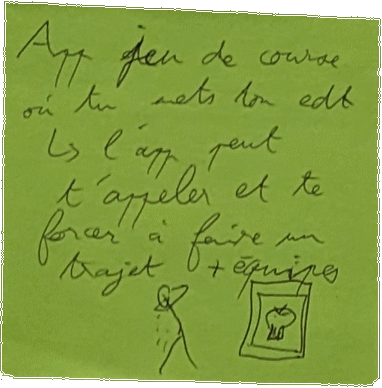 App jeu de course
où tu mets ton edt
↳ l'app peut
t'appeler et te
forcer à faire un
trajet + équipes